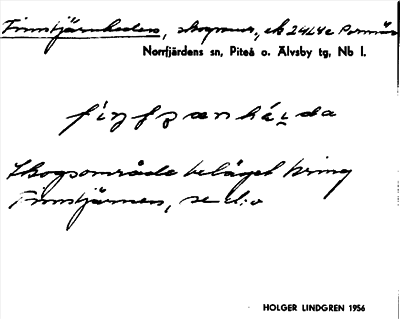 Finntjärnheden, skogsomr., ek 24L4e Pormäs
Norrfjärdens sn, Piteå o. Älvsby tg, Nb l.
Skogsområde beläget kring
Finntjärnen, se d:o
HOLGER LINDGREN 1956